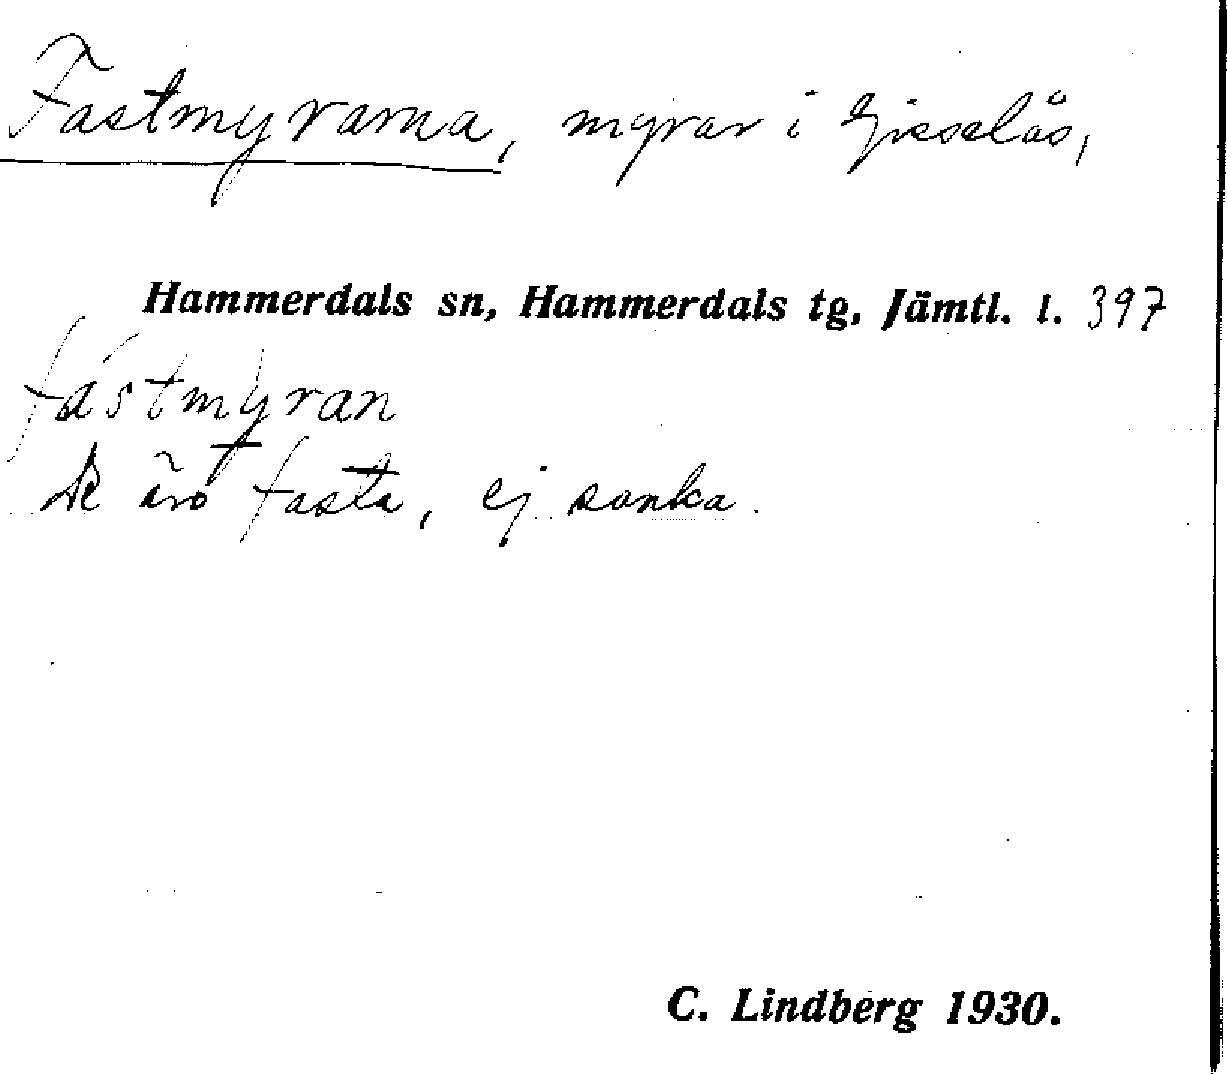 Fastmyrarna, myrar i Gisselås,
Hammerdals sn, Hammerdals tg, Jämtl. l. 397
fástmyran
De äro fasta, ej sanka.
C. Lindberg 1930.